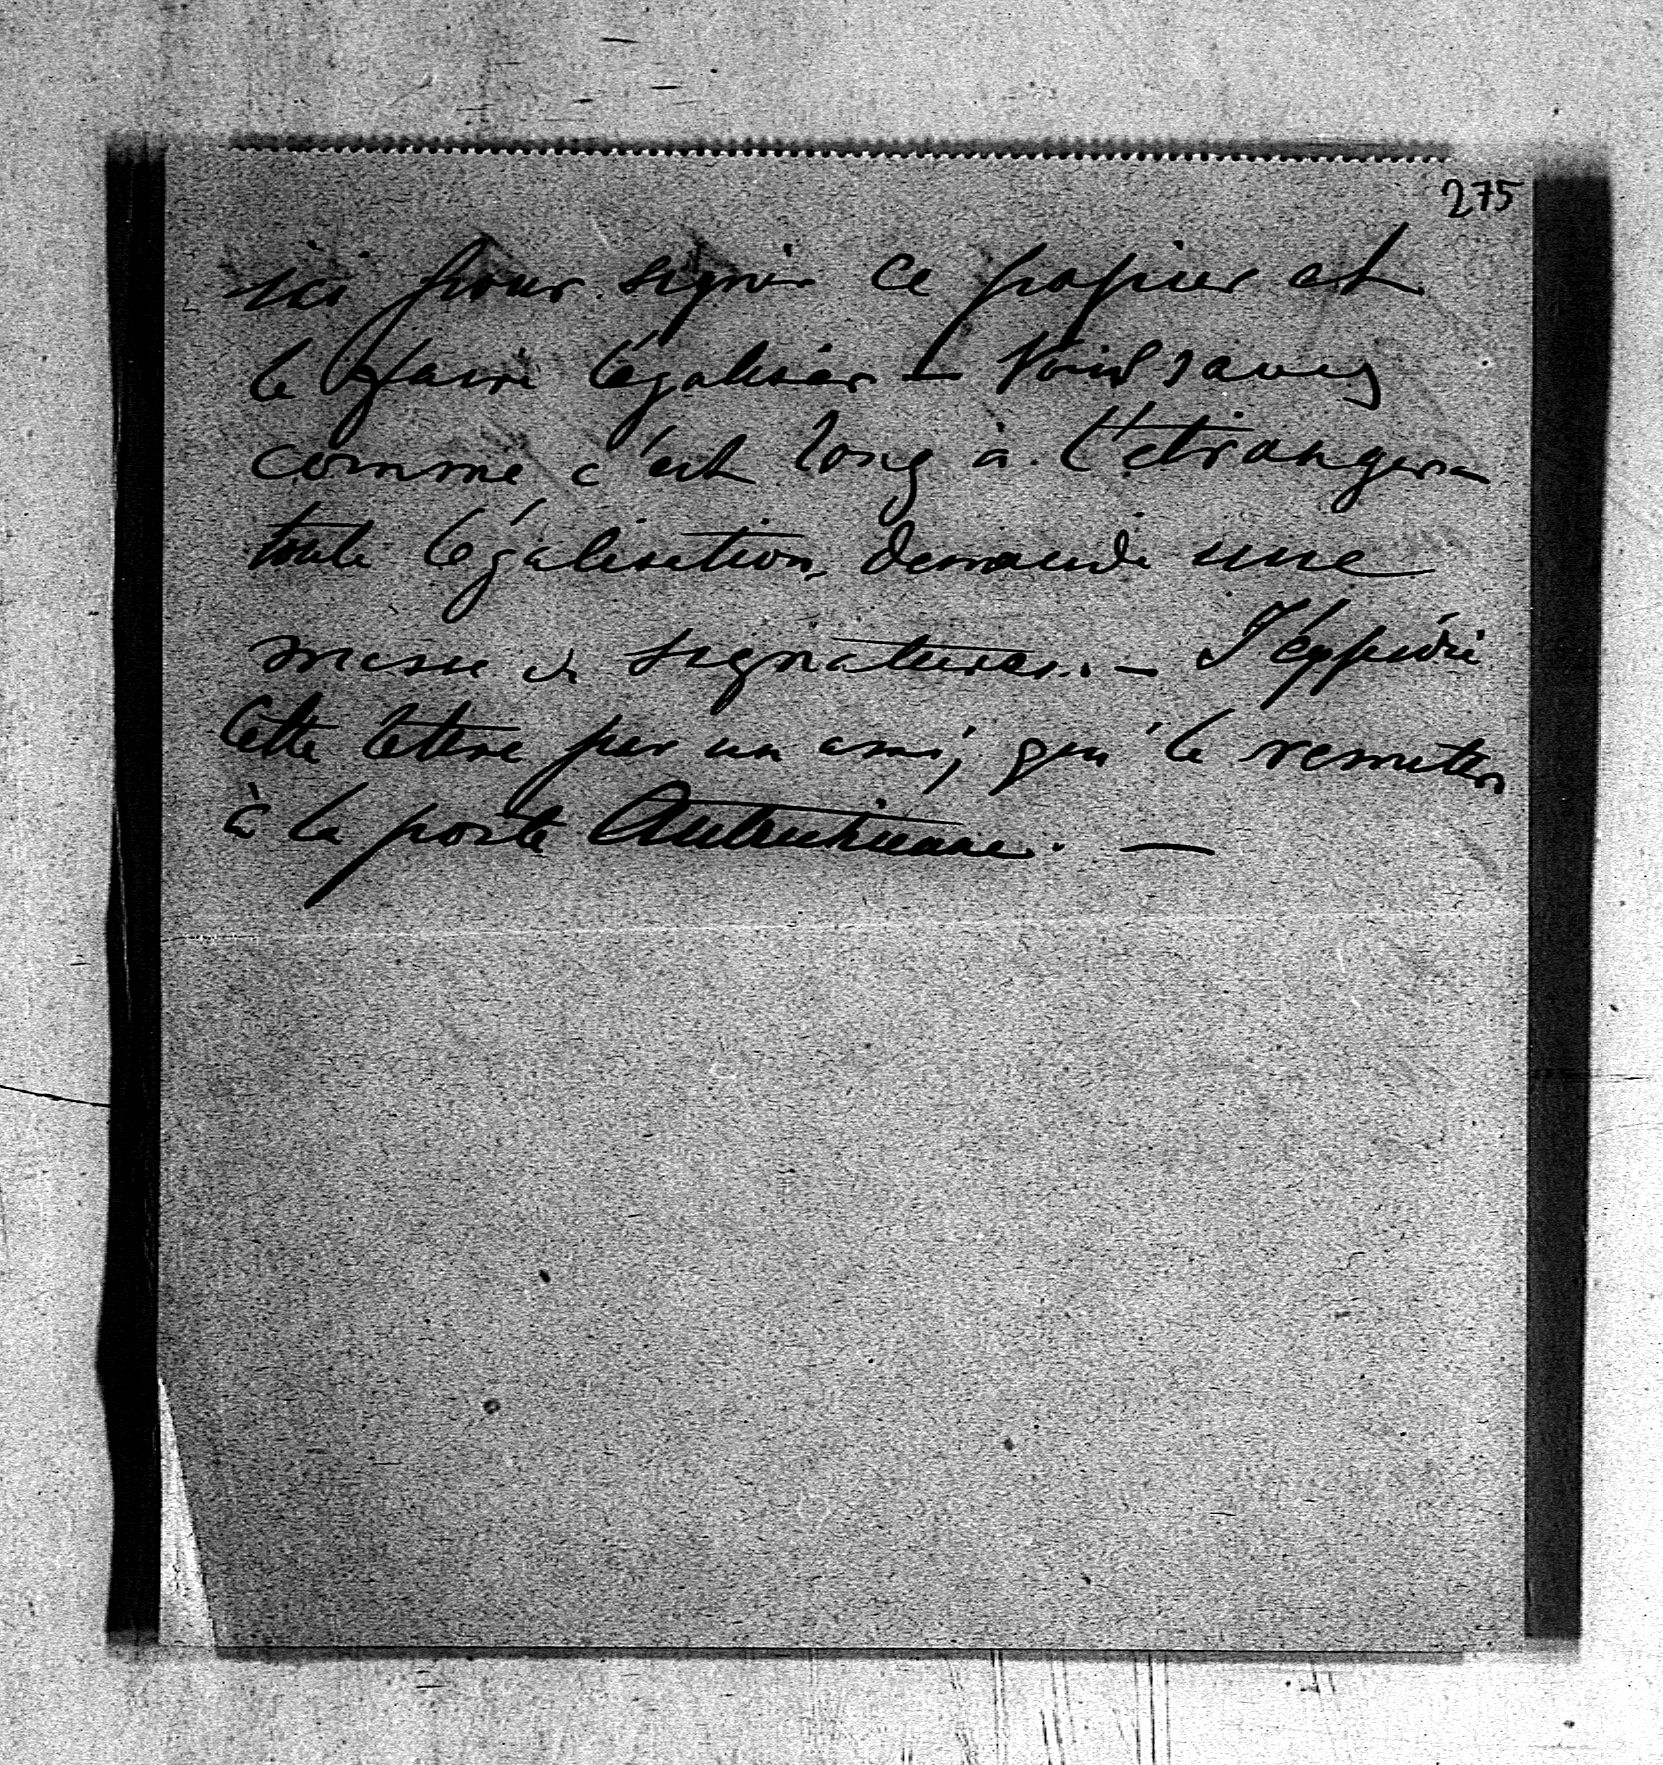 275
ici pour signer ce papier et
le faire légaliser — Vous savez
comme c'est long à l'étranger
toute légalisation demande une
masse de signatures. — J'éxpédie
cette lettre par un ami, qui le remettra
à la poste Autrichienne. —